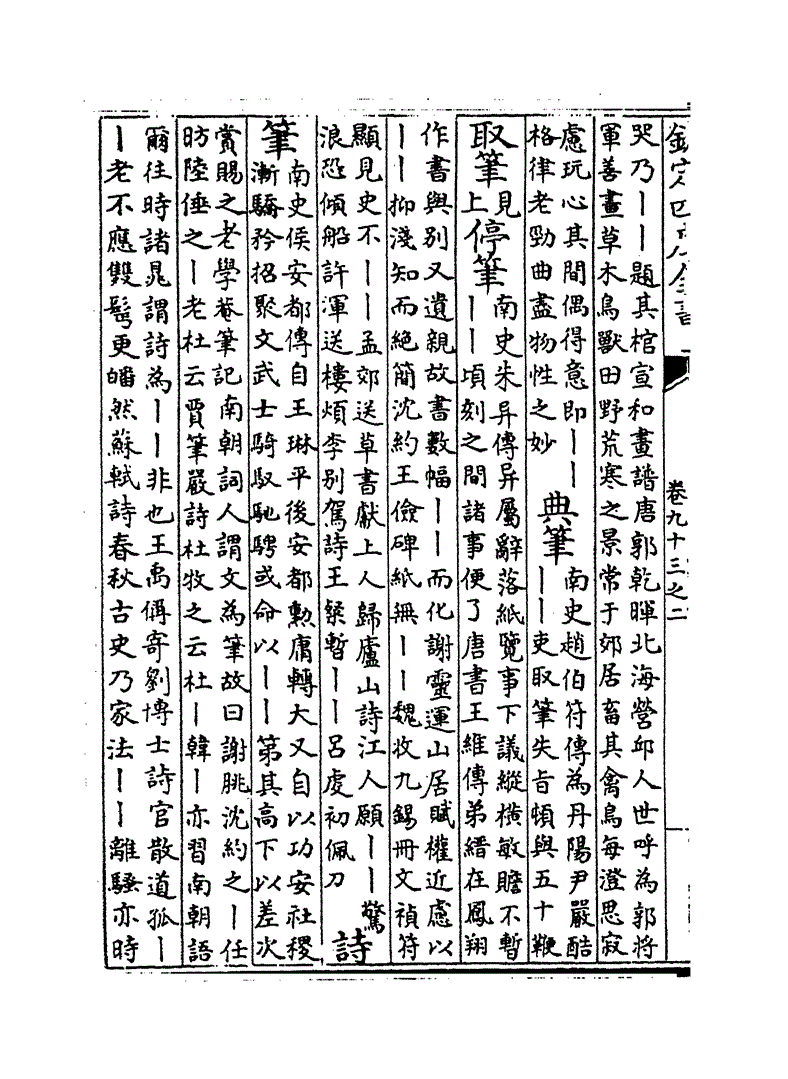 欽定四庫全書 卷九十三之二
哭乃丨丨題其棺宣和畫譜唐郭乾暉北海營邱人世呼為郭將
軍善畫草木鳥獸田野荒寒之景常于郊居畜其禽鳥每澄思寂
慮玩心其間偶得意即丨丨
格律老勁曲盡物性之妙
典筆
南史趙伯符傳為丹陽尹嚴酷
丨丨吏取筆失旨頓與五十鞭
取筆
見
上
停筆
南史朱异傳异屬辭落紙覽事下議縱橫敏贍不暫
丨丨頃刻之間諸事便了唐書王維傳弟縉在鳳翔
作書與別又遺親故書數幅丨丨而化謝靈運山居賦權近慮以
丨丨抑淺知而絶簡沈約王儉碑紙無丨丨魏收九錫冊文禎符
顯見史不丨丨孟郊送草書獻上人歸廬山詩江人願丨丨驚
浪恐傾船許渾送樓煩李別駕詩王粲暫丨丨呂虔初佩刀
詩
筆
南史侯安都傳自王琳平後安都勲庸轉大又自以功安社稷
漸驕矜招聚文武士騎馭馳騁或命以丨丨第其高下以差次
賞賜之老學菴筆記南朝詞人謂文為筆故曰謝朓沈約之丨任
昉陸倕之丨老杜云賈筆嚴詩杜牧之云杜丨韓丨亦習南朝語
爾往時諸晁謂詩為丨丨非也王禹偁寄劉博士詩官散道孤丨
丨老不應雙鬢更皤然蘇軾詩春秋古史乃家法丨丨離騷亦時